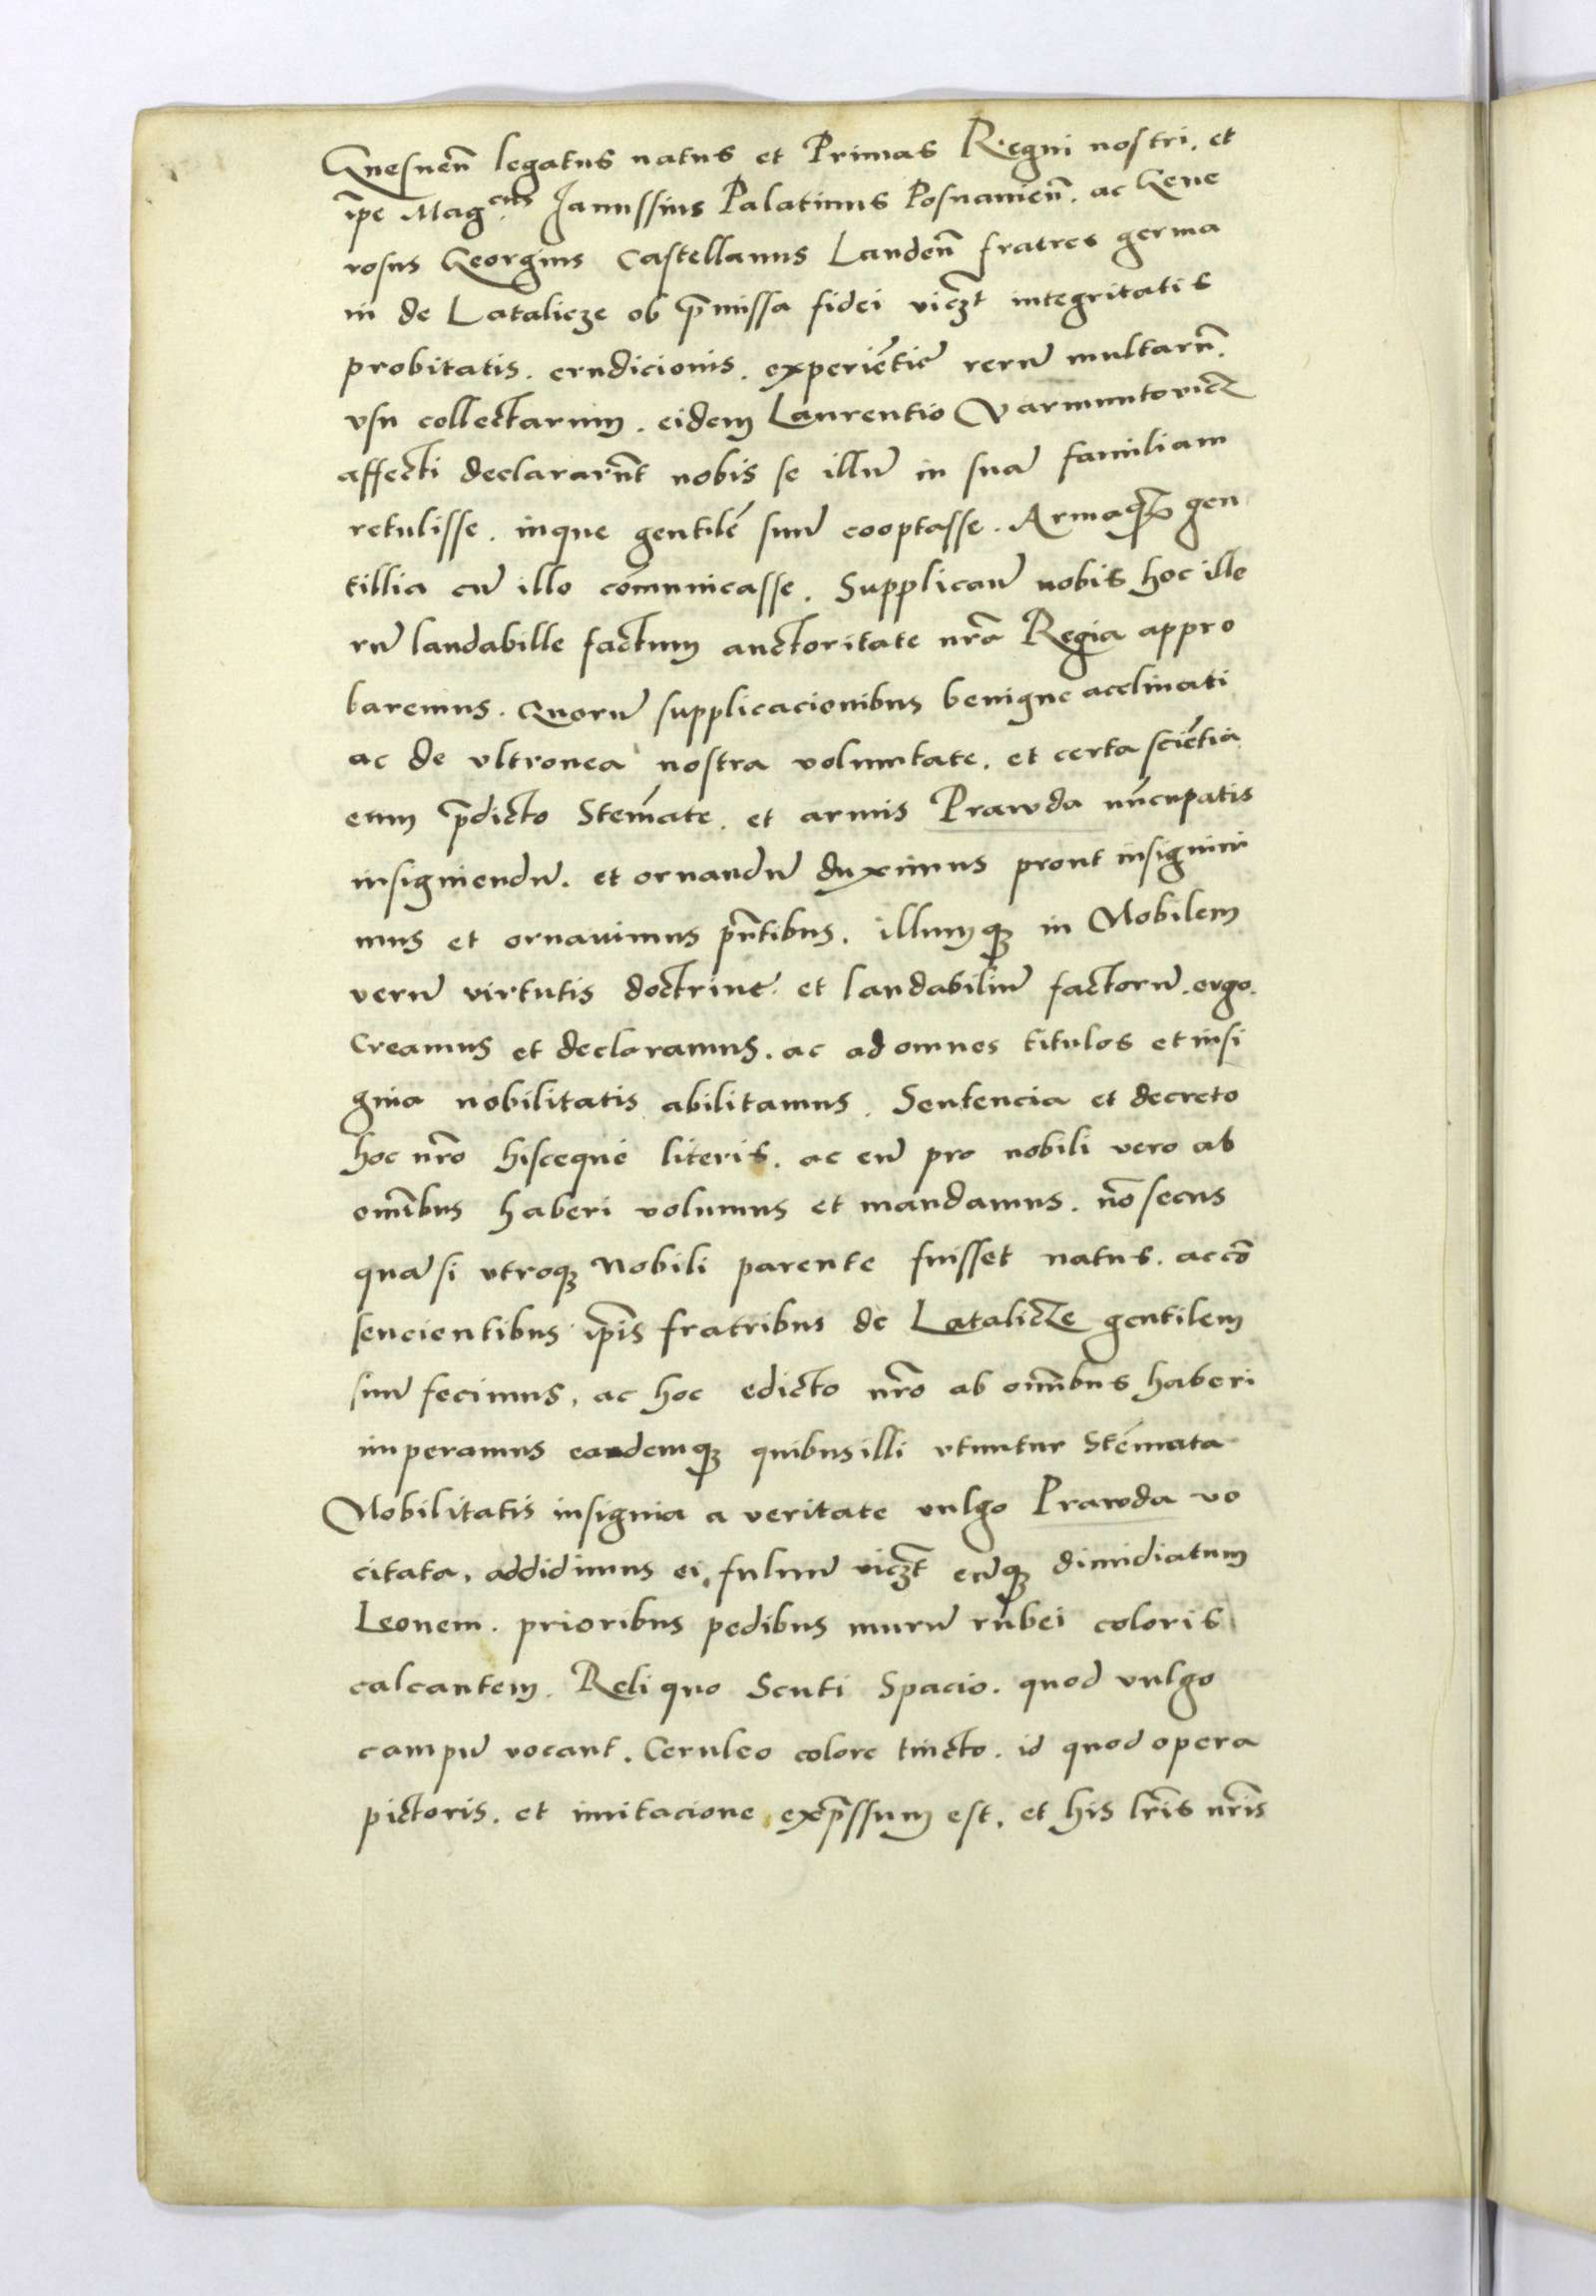 Gnesneñ legatus natus et Primas Regni nostri. et
ip̄e Mag.cus Janussius Palatinus Posnanieñ. ac Gene
rosus Georgius Castellanus Landeñ fratres germa
ni de Latalicze ob p̄missa fidei viczt̄ integritatis
probitatis. erudicionis. experiētie rerū multarū.
vsu collectarum. eidem Laurentio Varmuntovicz
affecti declararūt nobis se illū in suā familiam
retulisse. inque gentilē suū cooptasse. Armaq₃ gen
tillia cū illo cōmunicasse. Supplicarū nobis hoc illo
rū laudabille factum auctoritate nrā Regia appro
baremus. Quorū supplicacionibus benigne acclinati
ac de vltronea nostra voluntate. et certa sciētia
eum p̄dicto Stēmate. et armis Prawda nūcupatis
insigniendū. et ornandū duximus prout insigniui
mus et ornauimus pn̄tibus. illumq₃ in Nobilem
verū virtutis doctrine et laudabiliū factorū. ergo.
Creamus et declaramus. ac ad omnes titulos et insi
gnia nobilitatis abilitamus. Sentencia et decreto
hoc nrō hisceque literis. ac eū pro nobili vero ab
om̄ibus haberi volumus et mandamus. nō secus
quā si vtroq₃ Nobili parente fuisset natus. ac cō
sencientibus ip̄is fratribus de Latalicze gentilem
suū fecimus, ac hoc edicto nrō ab om̄ibus haberi
imperamus eademq₃ quibus illi vtuntur Stēmata
Nobilitatis insignia a veritate vulgo Prawda vo
citata, addidimus ei, fuluū viczt̄ eūq₃ dimidiatum
Leonem. prioribus pedibus murū rubei coloris
calcantem. Reliquo Scuti Spacio. quod vulgo
campū vocant. Ceruleo colore tincto. id quod opera
pictoris. et imitacione exp̄ssum est. et his lrīs nrīs